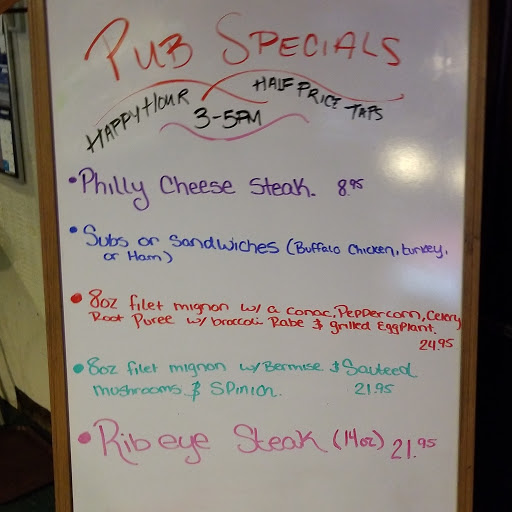 PUB SPECIALS
HAPPY HOUR HALF PRICE TAPS
3-5PM
• Philly Cheese Steak. 8.95
• Subs or Sandwiches (Buffalo Chicken, turkey,
or Ham)
• 8oz filet mignon w/ a conac, Peppercorn, Celery
Root Puree w/ broccoli Rabe & grilled EggPlant.
24.95
• 8oz filet mignon w/ Bermise & Sauteed
mushrooms & SPinion. 21.95
• Rib eye Steak (14oz) 21.95